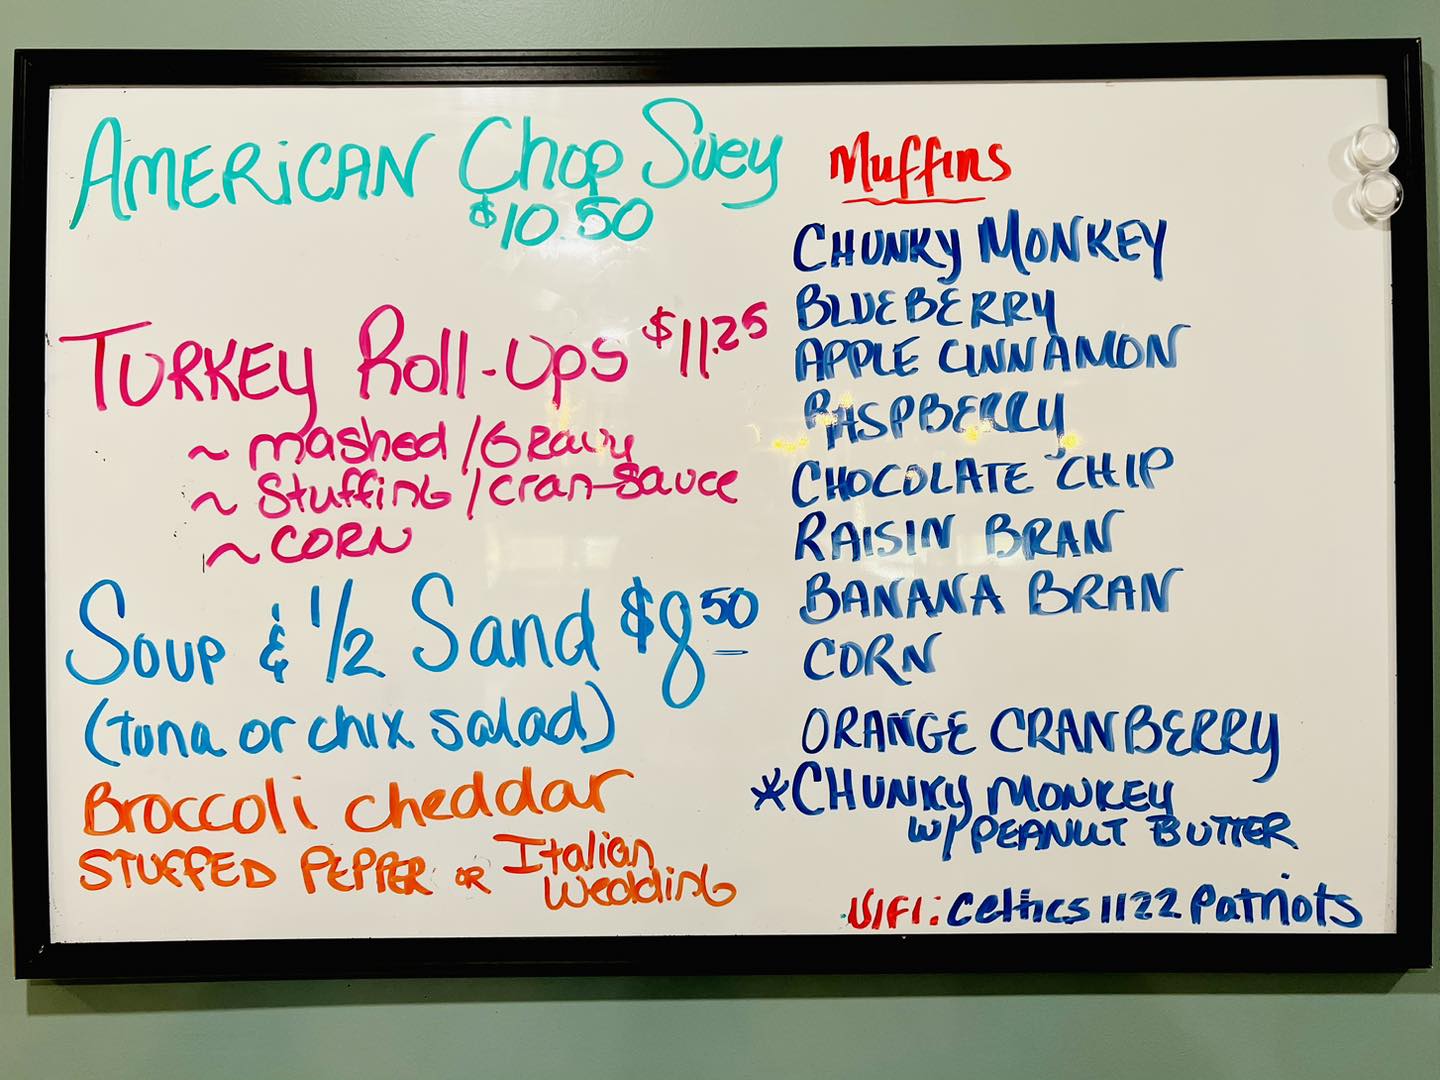 AMERiCAN Chop Suey
$10.50
TURKEY Roll-Ups $11.25
~ mashed/Gravy
~ Stuffing/cran-sauce
~ CORN
Soup & 1/2 Sand $8.50
(tuna or chix salad)
Broccoli cheddar
STUFFED PEPPER OR Italian
Wedding
Muffins
CHUNKY MONKEY
BLUEBERRY
APPLE CINNAMON
RASPBERRY
CHOCOLATE CHIP
RAISIN BRAN
BANANA BRAN
CORN
ORANGE CRANBERRY
*CHUNKY MONKEY
W/ PEANUT BUTTER
WIFI: Celtics1122Patriots